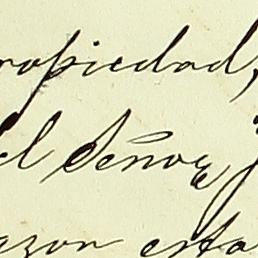 ropiedad,
el Señora
azon esta